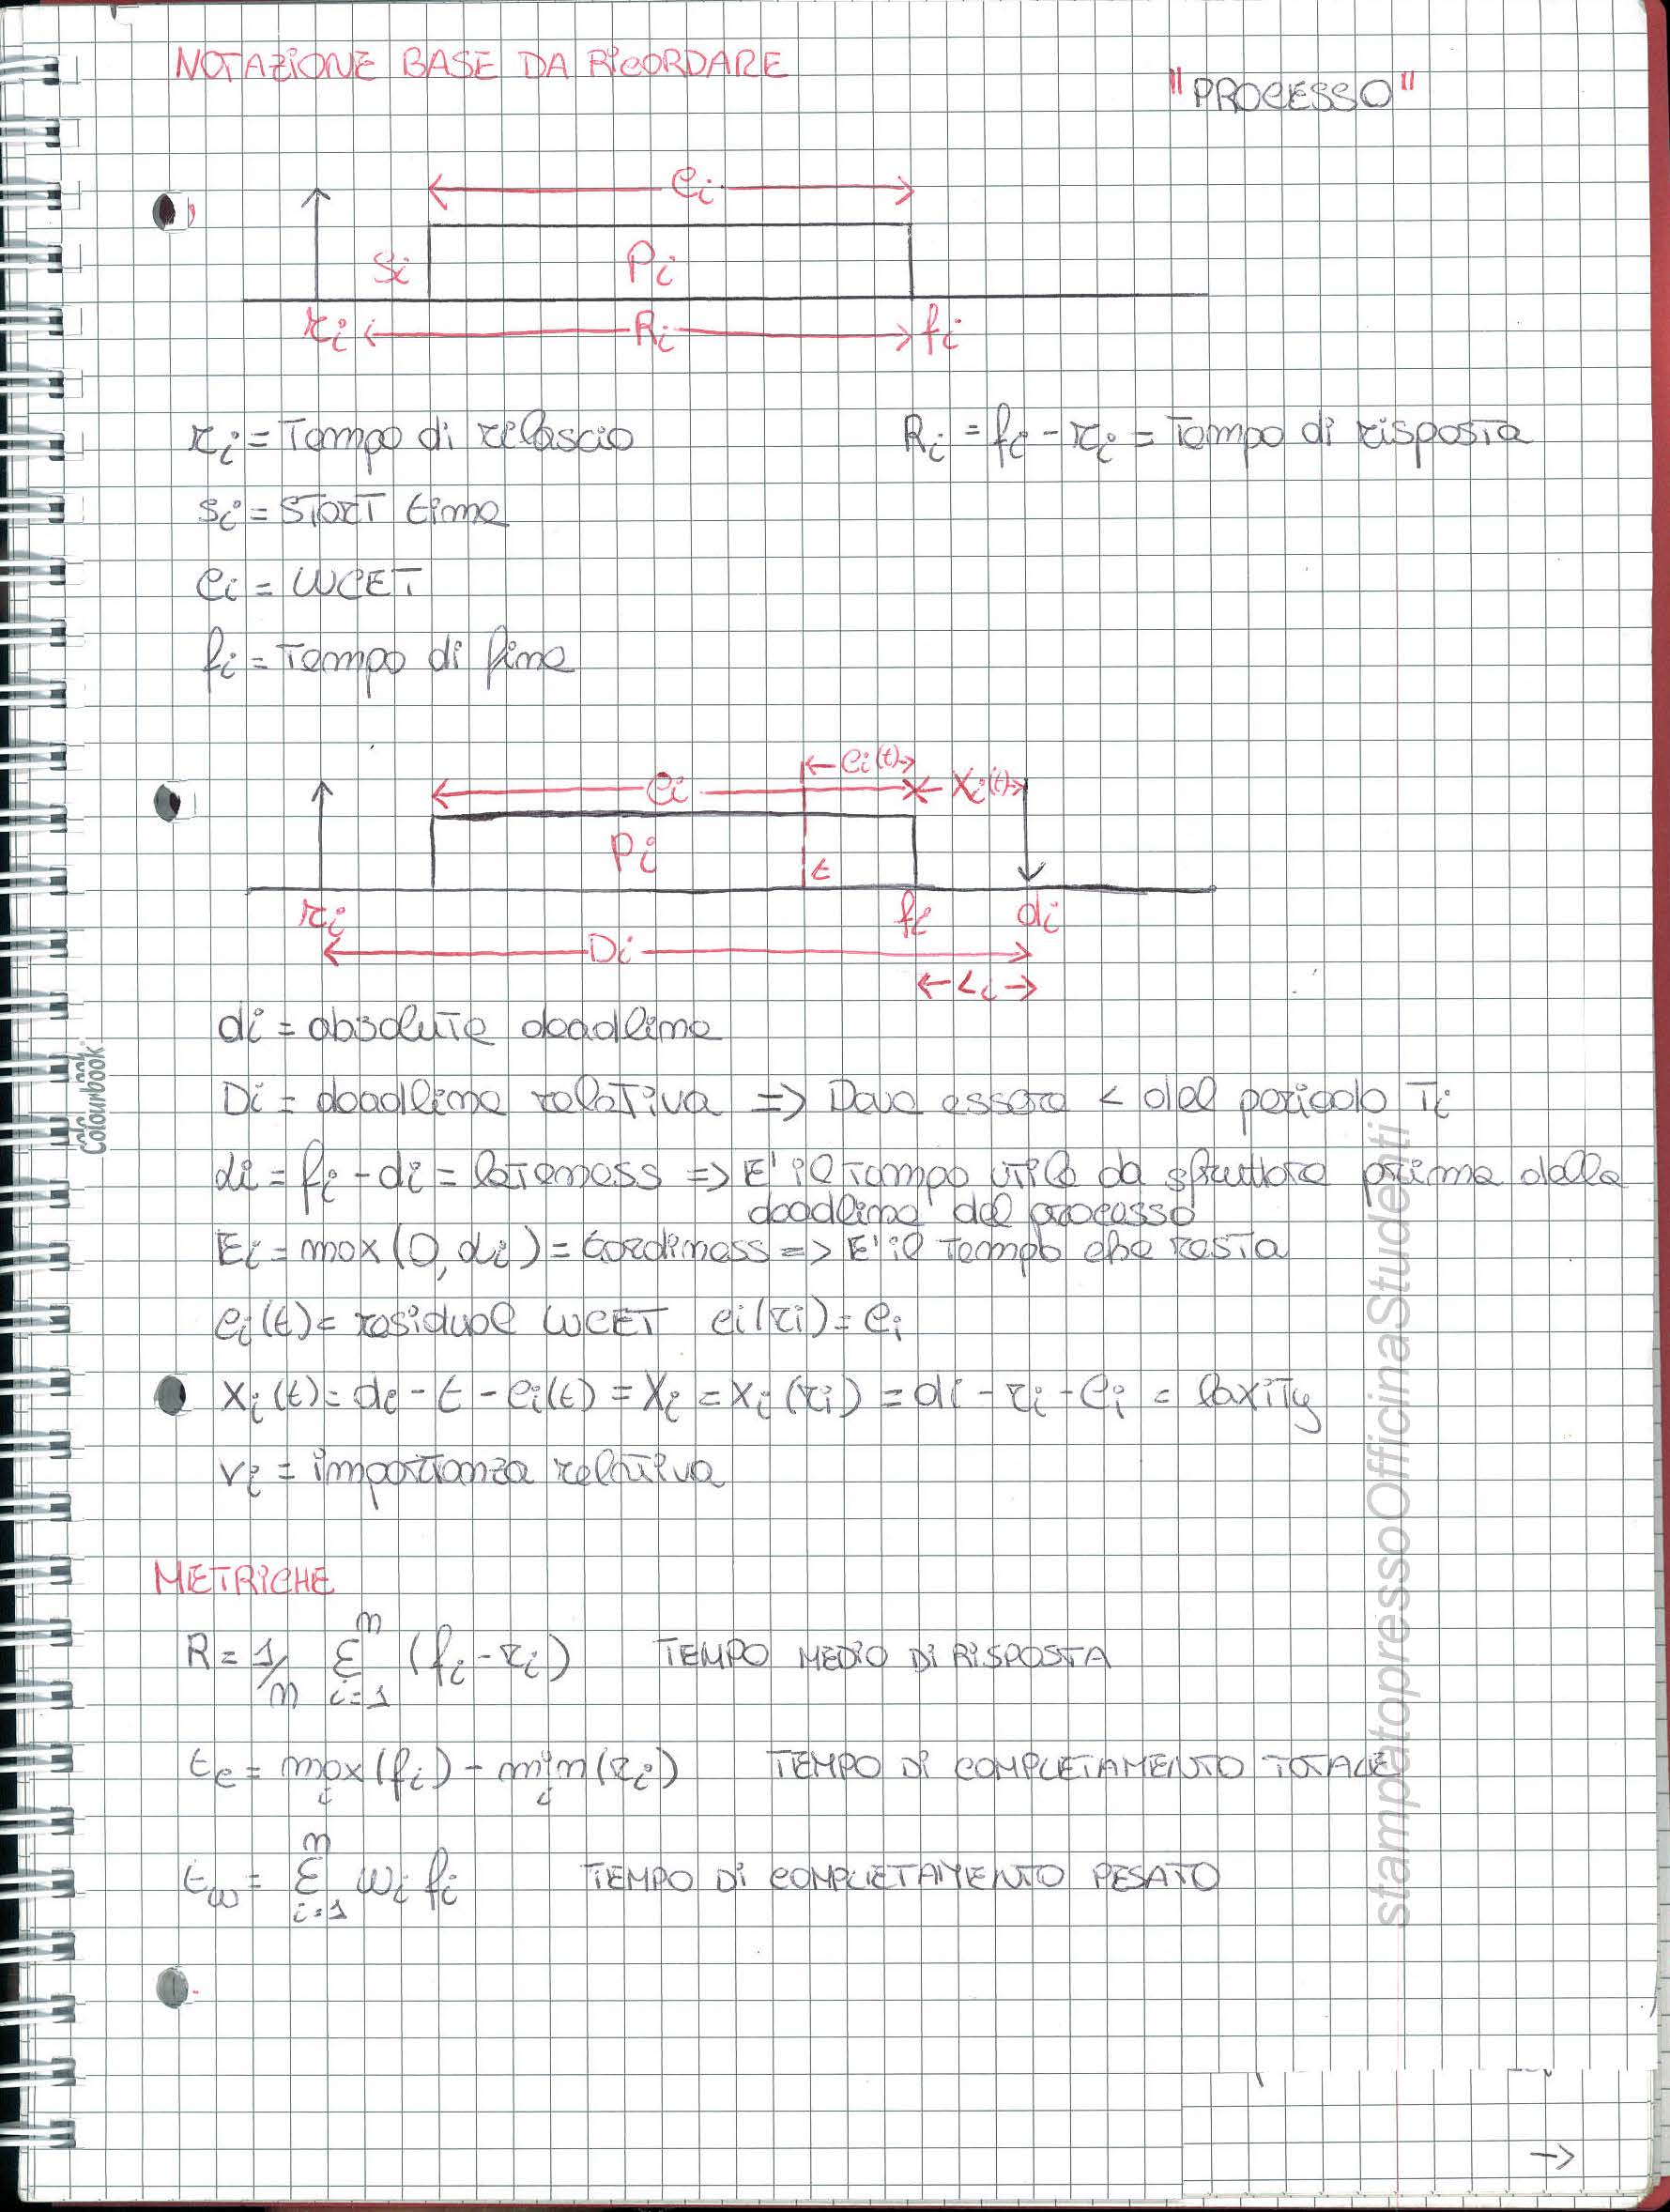 NOTAZIONE BASE DA RICORDARE
"PROCESSO"
ei
si Pi
ri Ri fi
ri = Tempo di rilascio Ri = fi - ri = Tempo di risposta
si = START time
ei = WCET
fi = Tempo di fine
ei(t)
ei Xi(t)
Pi t
ri fi di
Di
Li
di = absolute deadline
Di = deadline relativa => Deve essere < del periodo Ti
Li = fi - di = lateness => E' il tempo utile da sfruttare prima della
deadline del processo
Ei = max(0, Li) = tardiness => E' il tempo che resta
ei(t) = residual WCET ei(ri) = ei
Xi(t) = di - t - ei(t) = Xi = Xi(ri) = di - ri - ei = laxity
vi = importanza relativa
METRICHE
R = 1/n Σ i=1 n (fi - ri) TEMPO MEDIO DI RISPOSTA
te = max i (fi) - min i (ri) TEMPO DI COMPLETAMENTO TOTALE
tw = Σ i=1 n wi fi TEMPO DI COMPLETAMENTO PESATO
Colourbook
stampatopressoOfficinaStudenti